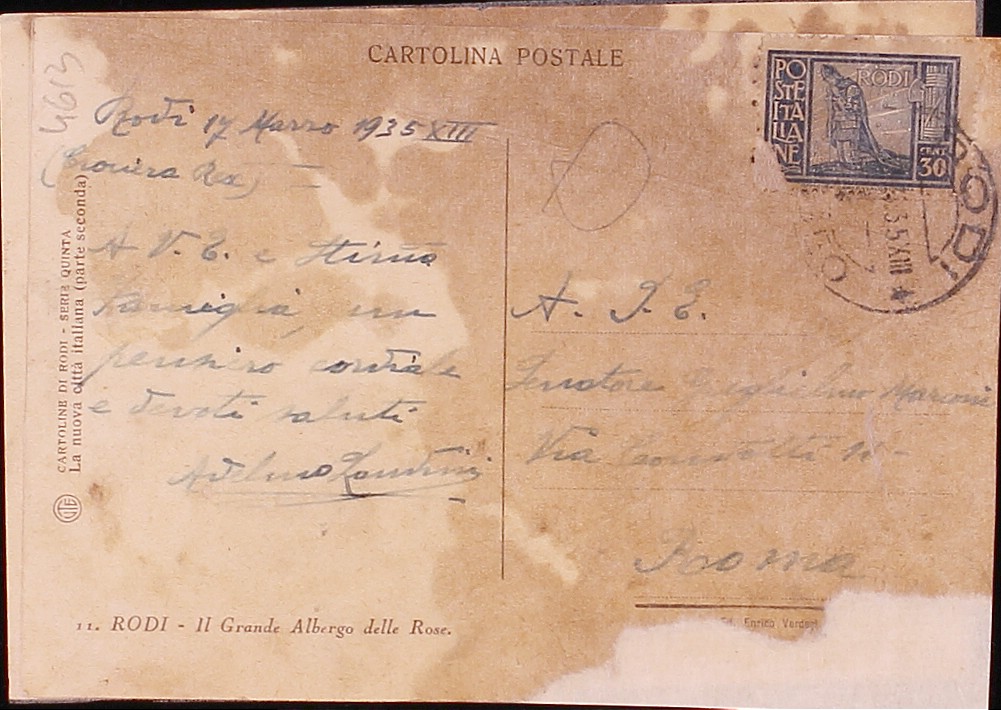 CARTOLINA POSTALE
4613
Rodi 17 Marzo 1935 XIII
(Crociera Rex)
A V. E. e Stima
famiglia, un
pensiero cordiale
e devoti saluti
Adelmo Landini
CARTOLINE DI RODI - SERIE QUINTA
La nuova città italiana (parte seconda)
CTE
11. RODI - Il Grande Albergo delle Rose.
POSTE ITALIANE
RODI
CENT. 30
RODI
A. S. E.
Senatore Guglielmo Marconi
Via Condotti N-
Roma
Ed. Enrico Verdesi